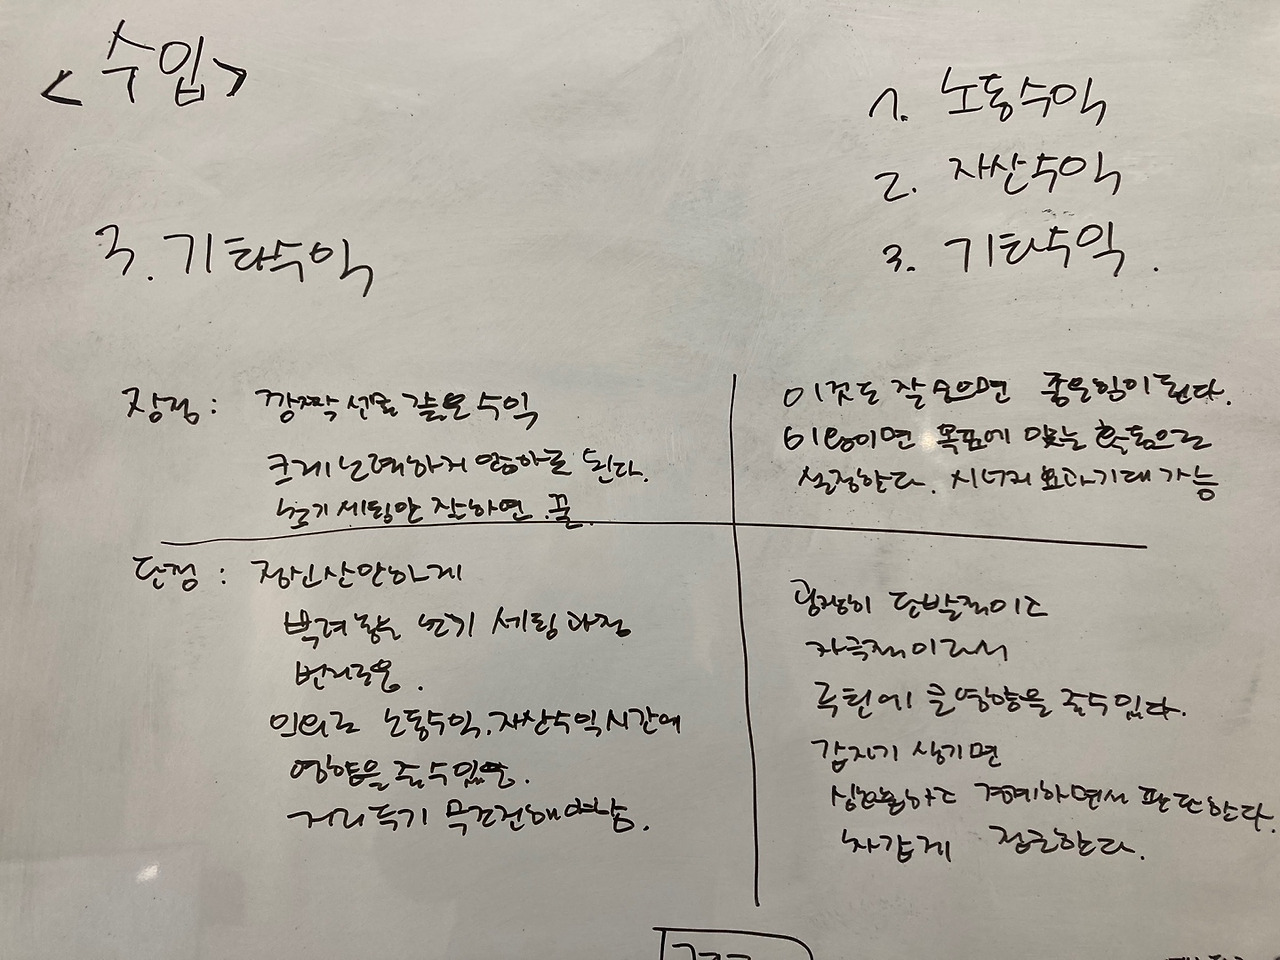 <수입>
1. 노동수익
2. 자산수익
3. 기타수익.
3. 기타수익
장점: 깜짝 선물 같은 수익
크게 노력하지 않아도 된다.
초기 세팅만 잘하면 꿀
이것도 잘 모으면 좋은 힘이 된다.
이왕이면 목표에 맞는 활동으로
설정한다. 시너지 효과 기대 가능
단점: 정신산만하게
초기 세팅 과정
번거로움.
의외로 노동수익, 자산수익 시간에
영향을 줄 수 있
거리두기 무조건 해야함.
굉장히 단발적이고
자극적이라서
루틴에 큰 영향을 줄 수 있다.
갑자기 생기면
심호흡하고 경계하면서 판단한다.
차갑게 접근한다.